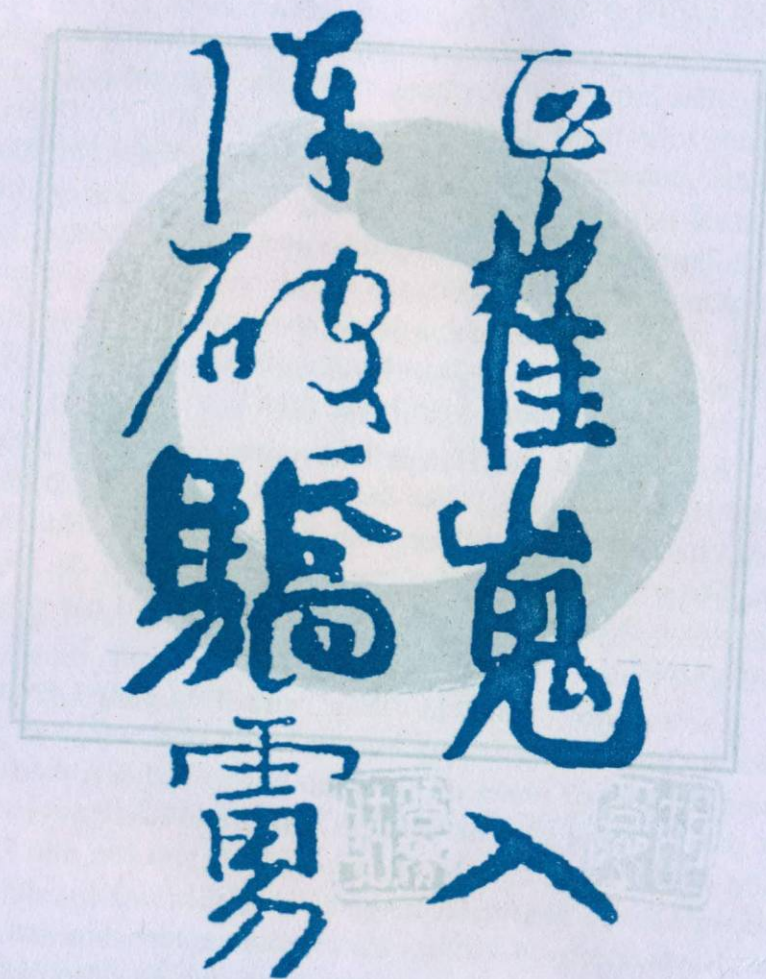 崔嵬入
陣破驕虜